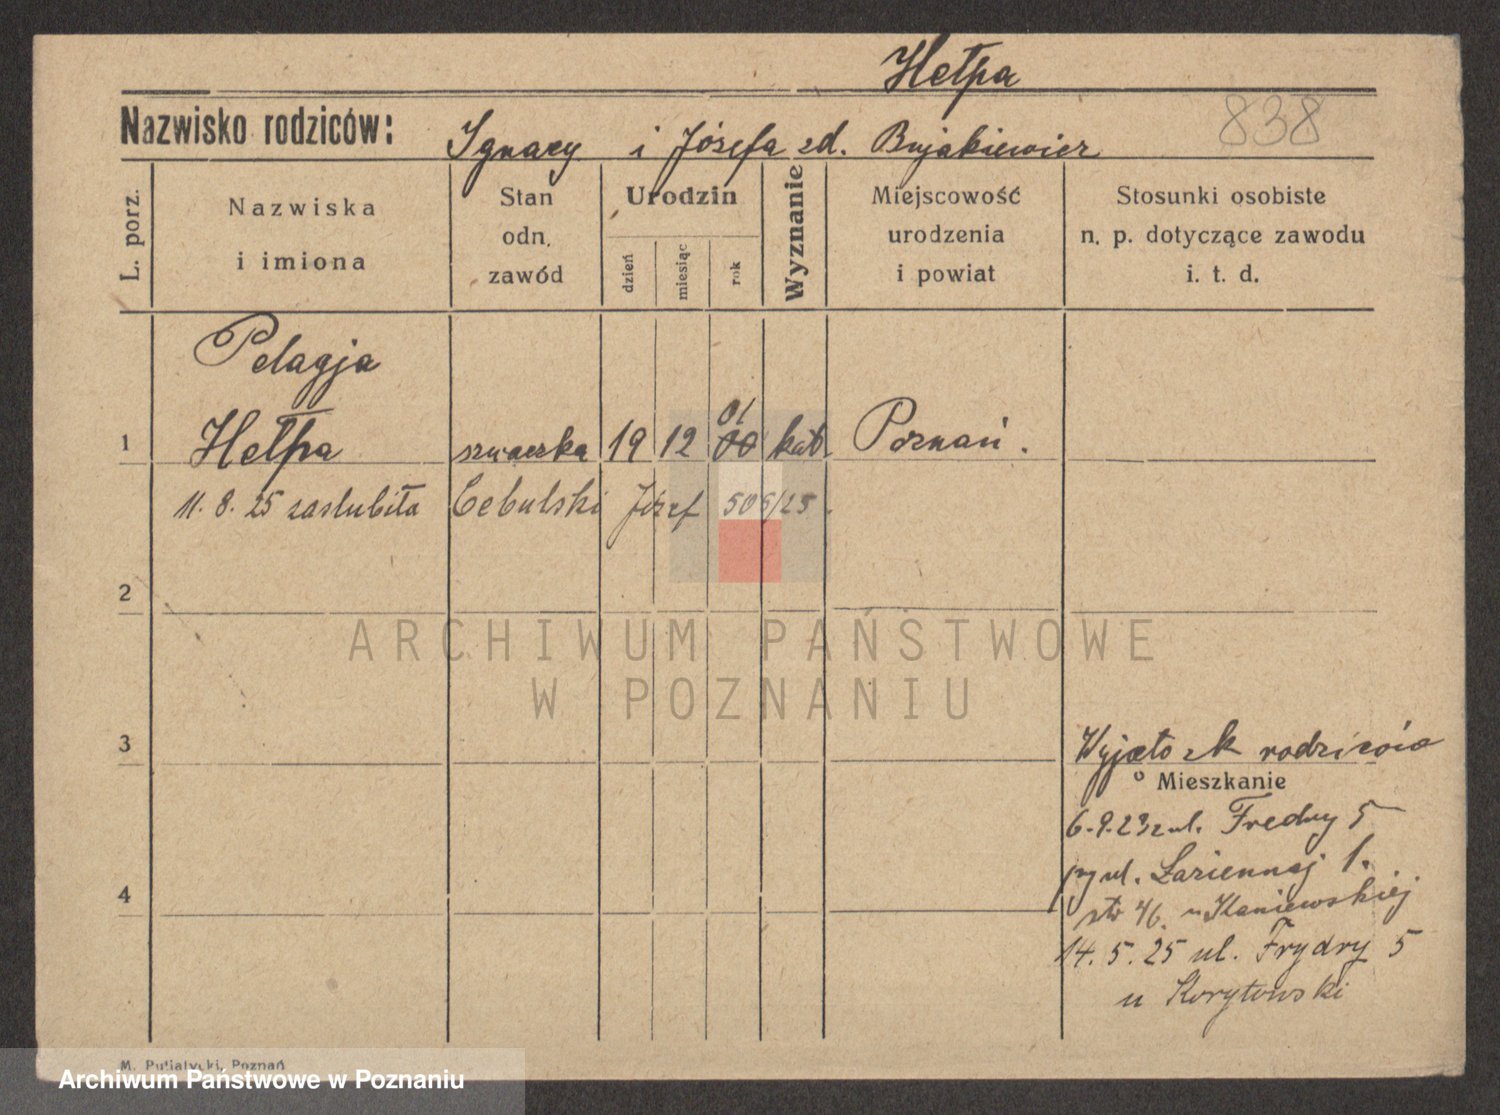 Hełpa
838
Nazwisko rodziców: Ignacy i Józefa zd. Bujakiewicz
L. porz.
Nazwiska i imiona
Stan odn. zawód
Urodzin
dzień miesiąc rok
Wyznanie
Miejscowość urodzenia i powiat
Stosunki osobiste n. p. dotyczące zawodu i. t. d.
Pelagja
01
1 Hełpa szwaczka 19 12 00 kat. Poznań.
11. 8. 25 zaslubiła Cebulski Józef 506/25.
2
ARCHIWUM PAŃSTWOWE
W POZNANIU
3
Wyjęto z k rodziców
Mieszkanie
6.9.23 z ul. Fredry 5
przy ul. Łaziennej 1.
4
str 46. u Kaniewskiej
14. 5. 25 ul. Frydry 5
u Korytowski
M. Putiatycki, Poznań
Archiwum Państwowe w Poznaniu